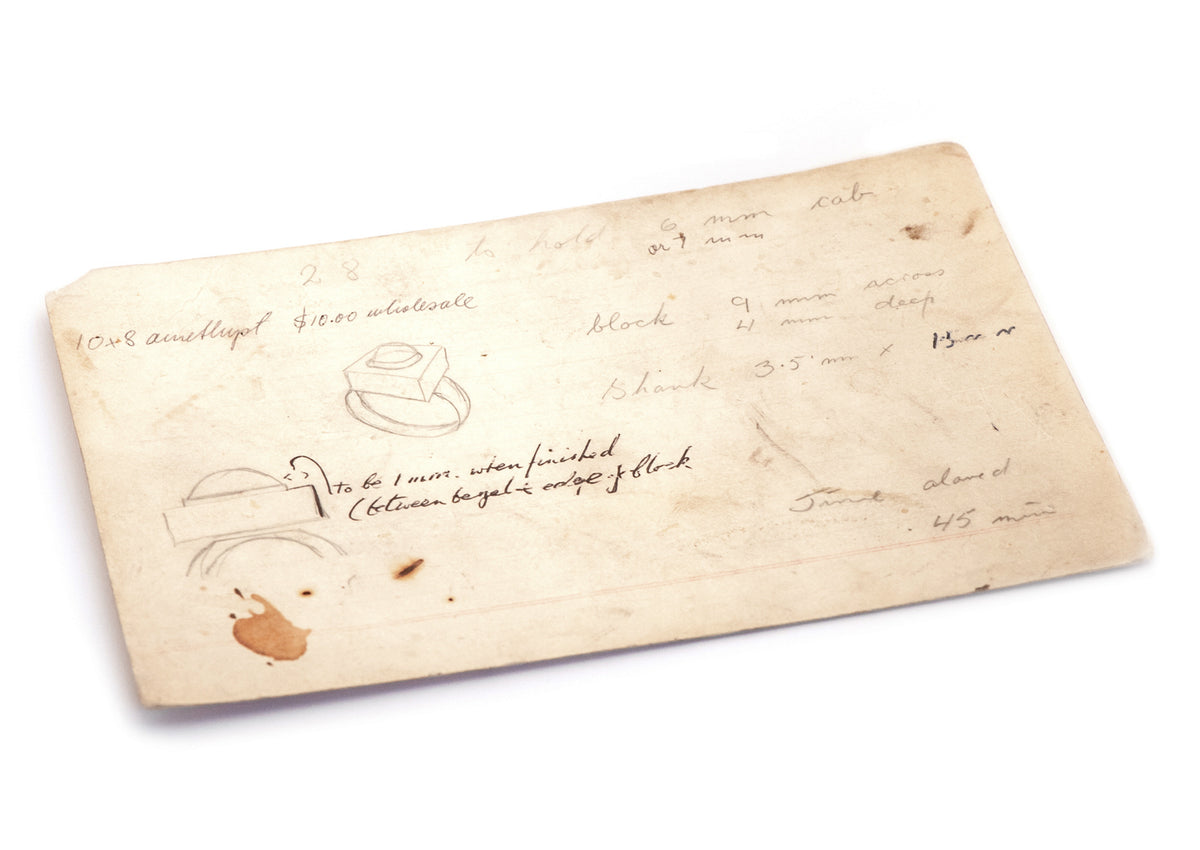 28
to hold 6 mm cab
or 7 mm
10x8 amethyst $10.00 wholesale
block 9 mm across
4 mm deep
Shank 3.5 mm x
to be 1 mm. when finished
(between bezel + edge of block
Time alowed
45 min